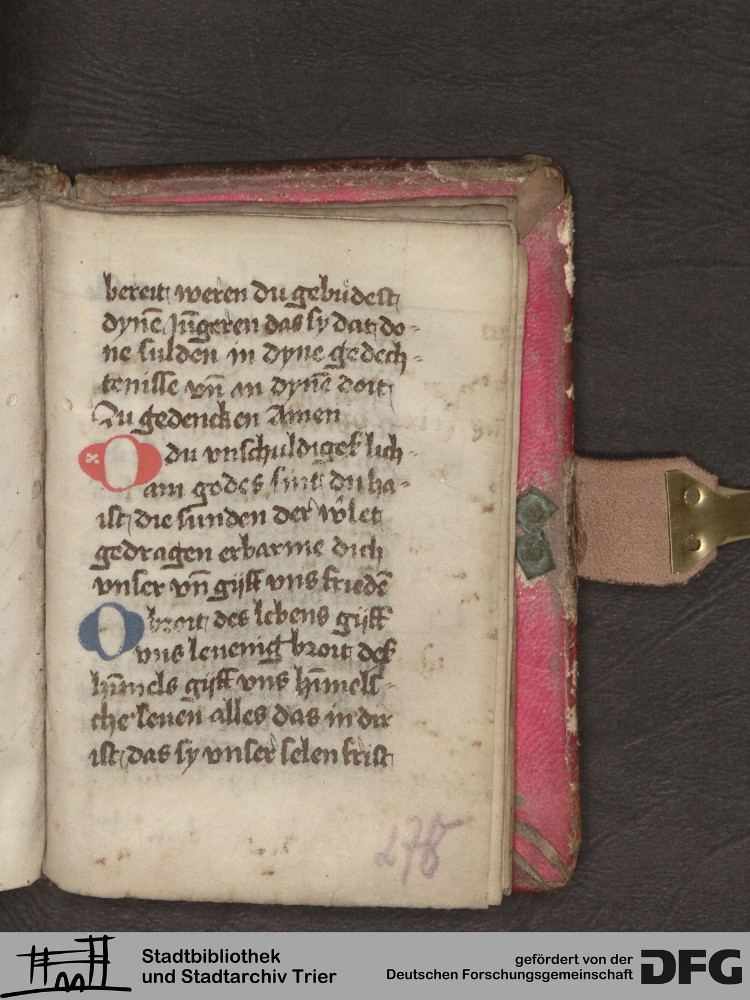 bereit weren du gebudest
dynē Jūgeren das sy dat do-
ne sulden in dyne gedech-
tenisse vn̄ an dynē doit
Zu gedencken Amen
O du vnschuldigeß lich-
am godes sint du ha-
ist die sunden der werlet
gedragen erbarme dich
vnser vn̄ gijff vns friedē
O broit des lebens gijff
vns leuenig broit deß
hīmels gijff vns hīmels-
che leuen alles das in dir
ist das sy vnser selen frist
278
Stadtbibliothek
und Stadtarchiv Trier
gefördert von der
Deutschen Forschungsgemeinschaft
DFG